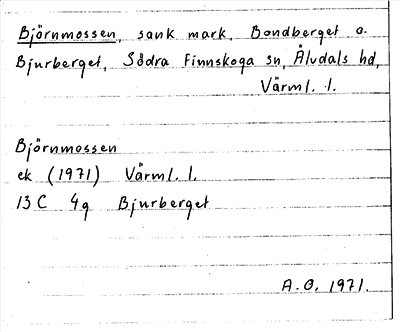 Björnmossen, sank mark, Bondberget o.
Bjurberget, Södra Finnskoga sn, Älvdals hd,
Värml. l.
Björnmossen
ek (1971) Värml. l.
13 C 4g Bjurberget
A.O. 1971.